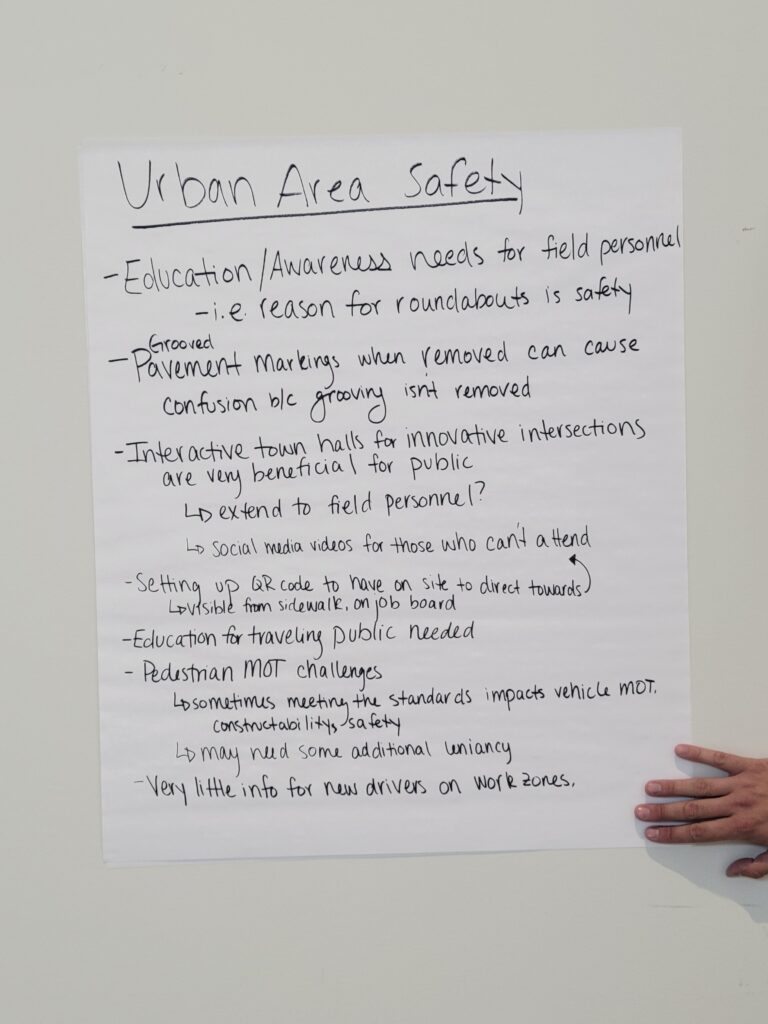 Urban Area Safety
- Education/Awareness needs for field personnel
- i.e. reason for roundabouts is safety
Grooved
- Pavement Markings when removed can cause
confusion b/c grooving isn't removed
- Interactive town halls for innovative intersections
are very beneficial for public
↳ extend to field personnel?
↳ social media videos for those who can't attend
- Setting up QR code to have on site to direct towards
↳ visible from sidewalk, on job board
- Education for traveling public needed
- Pedestrian MOT challenges
↳ sometimes meeting the standards impacts vehicle MOT,
constructability, safety
↳ may need some additional leniancy
- Very little info for new drivers on work zones.